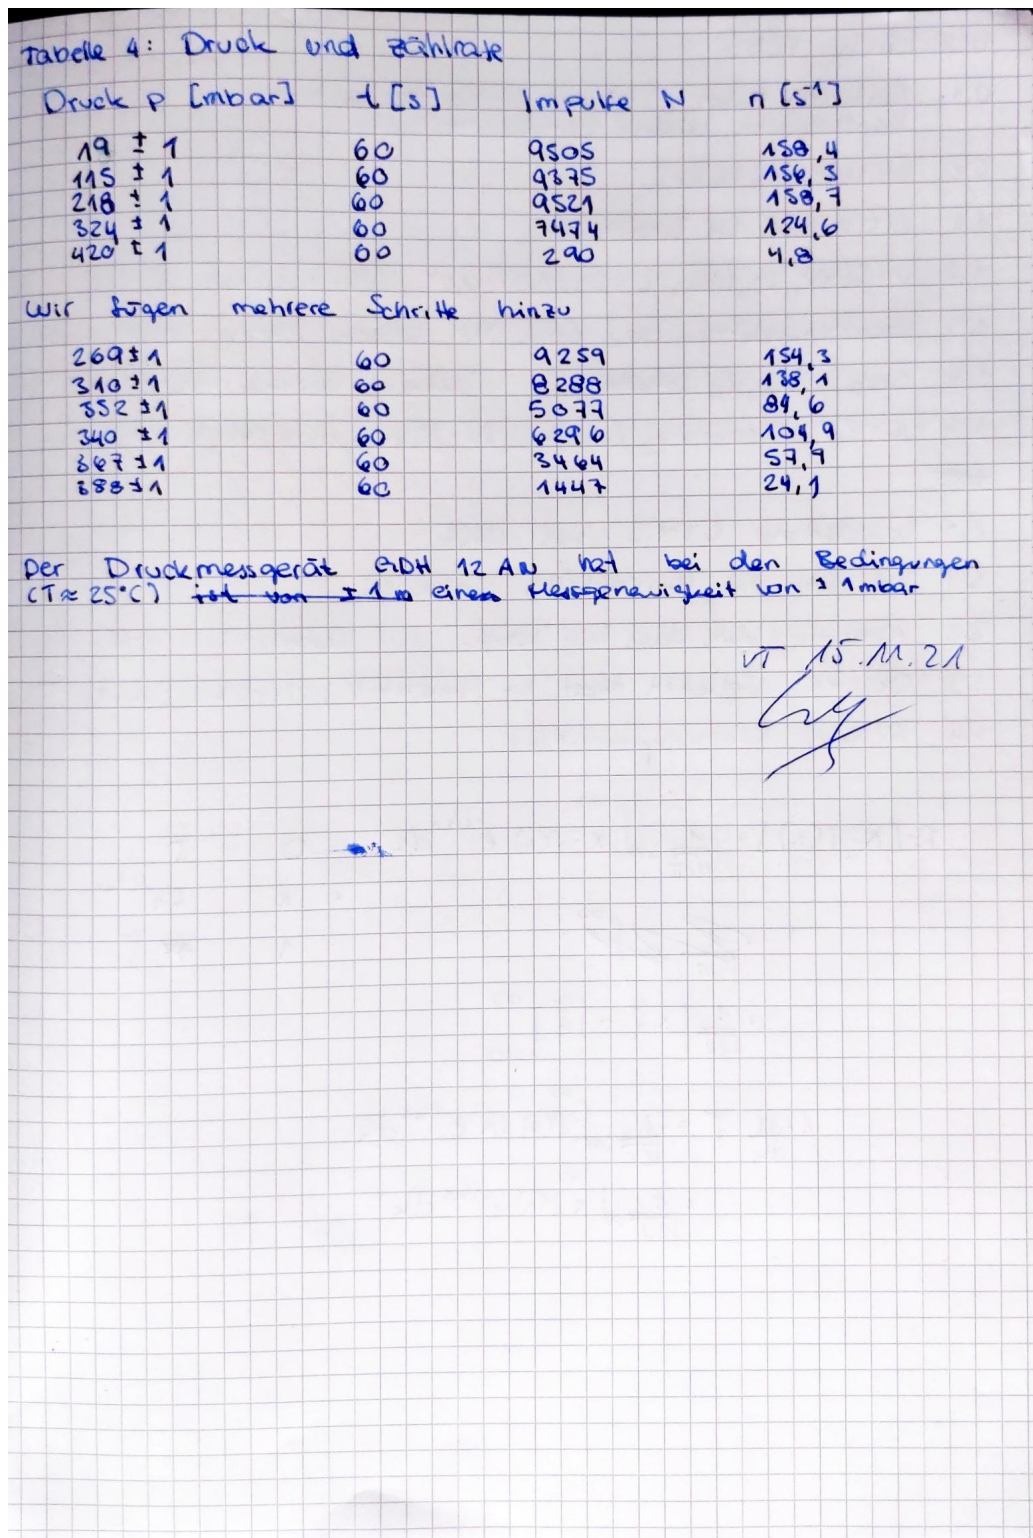 Tabelle 4: Druck und Zählrate
Druck p [mbar] t [s] Impulse N n [s⁻¹]
19 ± 1 60 9505 158,4
115 ± 1 60 9375 156,3
218 ± 1 60 9521 158,7
324 ± 1 60 7474 124,6
420 ± 1 60 290 4,8
Wir fügen mehrere Schritte hinzu
269 ± 1 60 9259 154,3
310 ± 1 60 8288 138,1
352 ± 1 60 5077 84,6
340 ± 1 60 6296 104,9
367 ± 1 60 3464 57,7
388 ± 1 60 1447 24,1
Der Druckmessgerät GDH 12 AN hat bei den Bedingungen
(T ≈ 25°C) ist von ± 1 m eine Messgenauigkeit von ± 1 mbar
VT 15.11.21